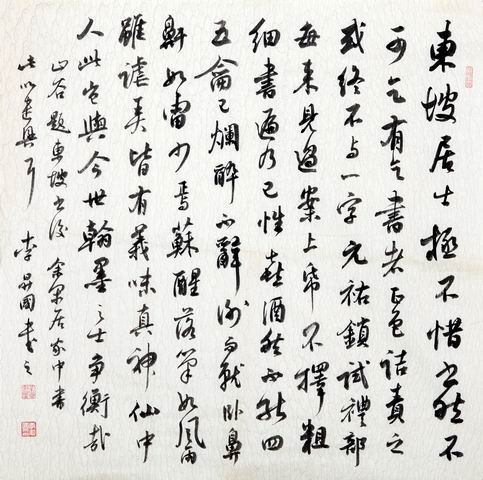 東坡居士極不惜书然不
可乞有乞書者正色詰責之
或終不与一字元祐鎖試禮部
每来見過案上帋不擇粗
細書遍乃已性喜酒然不能四
五龠已爛醉不辭谢而就卧鼻
鼾如雷少焉蘇醒落筆如風雨
雖謔弄皆有義味真神仙中
人此豈與今世翰墨之士爭衡哉
山谷題東坡书後 余居家中書
此以遣興耳 李昇國書之